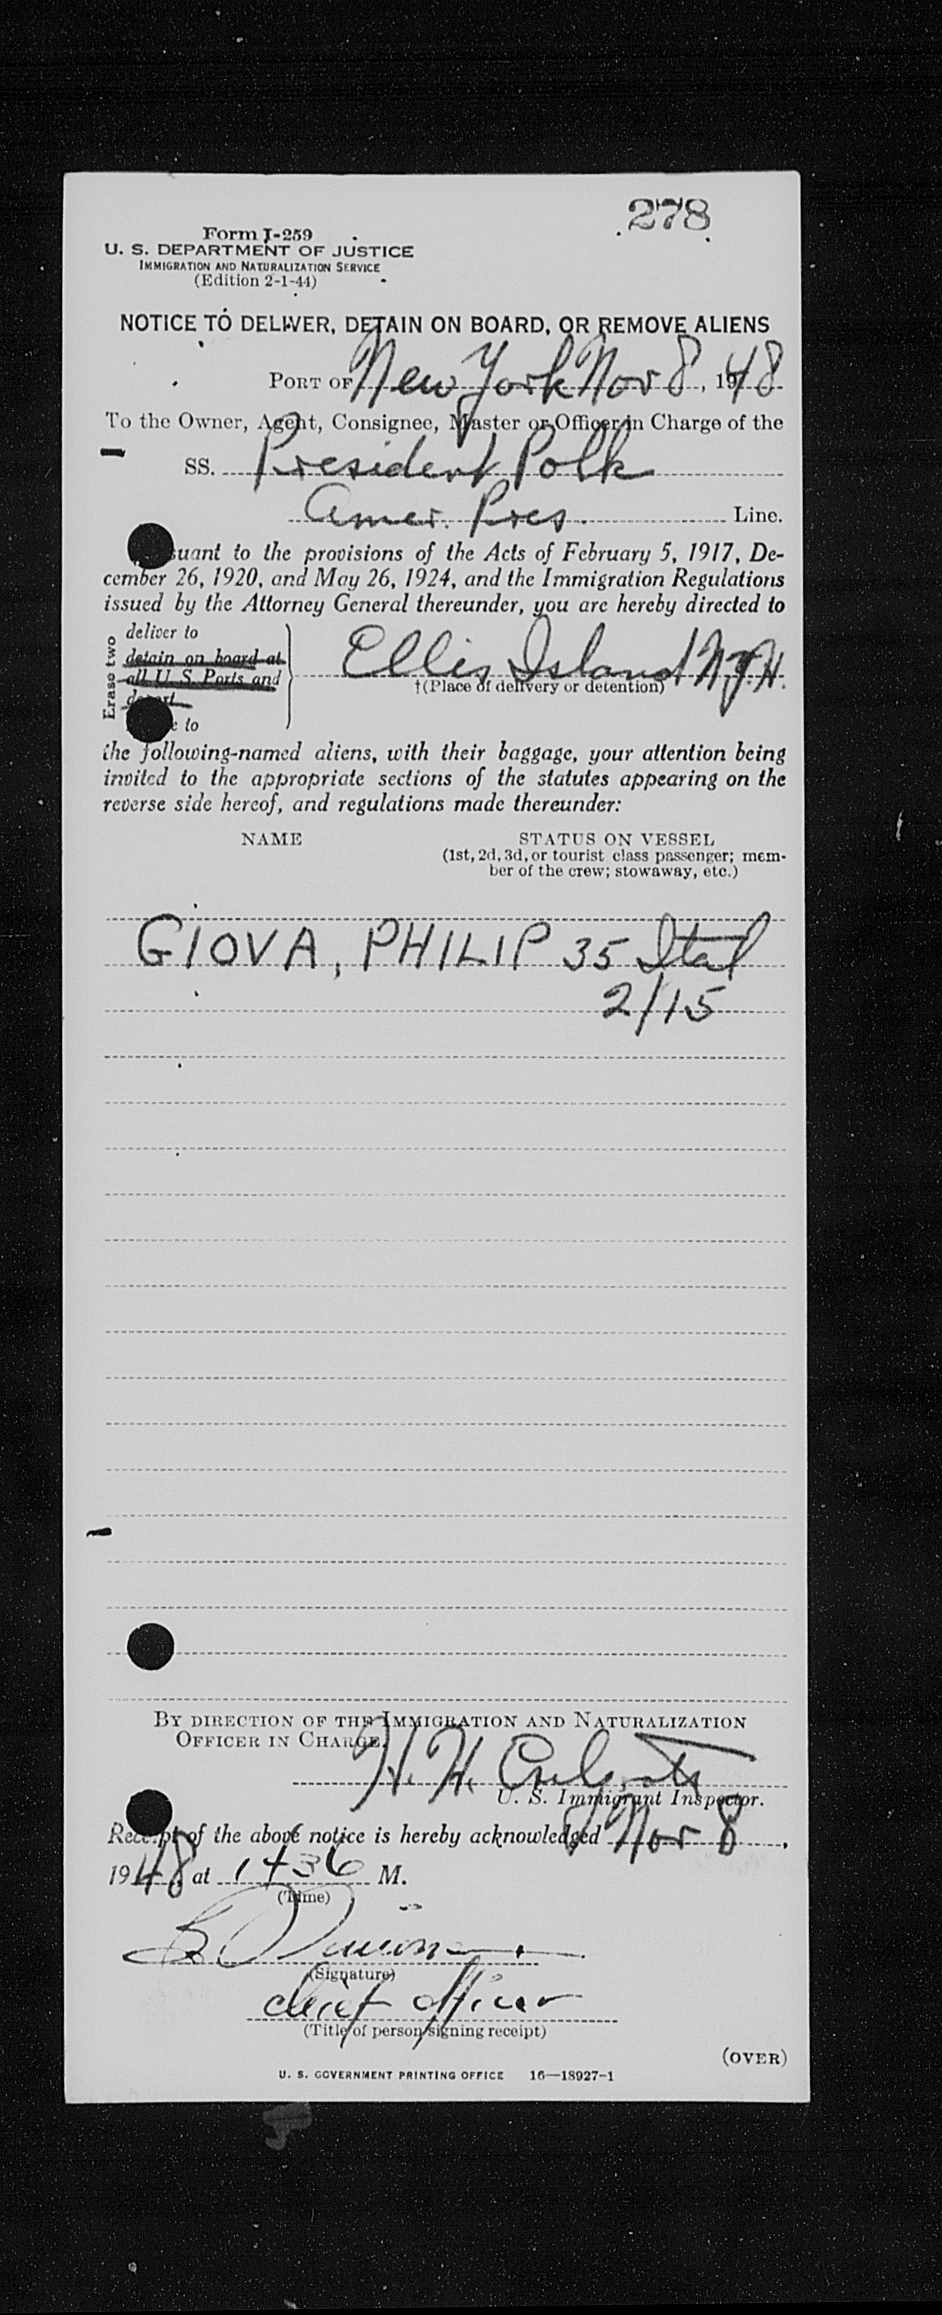 278
Form I-259
U. S. DEPARTMENT OF JUSTICE
IMMIGRATION AND NATURALIZATION SERVICE
(Edition 2-1-44)
NOTICE TO DELIVER, DETAIN ON BOARD, OR REMOVE ALIENS
PORT OF New York Nov 8, 1948
To the Owner, Agent, Consignee, Master or Officer in Charge of the
SS. President Polk
Amer. Pres. Line.
suant to the provisions of the Acts of February 5, 1917, De-
cember 26, 1920, and May 26, 1924, and the Immigration Regulations
issued by the Attorney General thereunder, you are hereby directed to
Erase two
deliver to
detain on board at
all U. S. Ports and
Ellis Island N.Y.H.
†(Place of delivery or detention)
to
the following-named aliens, with their baggage, your attention being
invited to the appropriate sections of the statutes appearing on the
reverse side hereof, and regulations made thereunder:
NAME STATUS ON VESSEL
(1st, 2d, 3d, or tourist class passenger; mem-
ber of the crew; stowaway, etc.)
GIOVA, PHILIP 35 Ital
2/15
BY DIRECTION OF THE IMMIGRATION AND NATURALIZATION
OFFICER IN CHARGE.
H. H.
U. S. Immigrant Inspector.
Receipt of the above notice is hereby acknowledged Nov 8,
1948 at 1436 M.
(Time)
(Signature)
chief officer
(Title of person signing receipt)
(OVER)
U. S. GOVERNMENT PRINTING OFFICE 16—18927-1